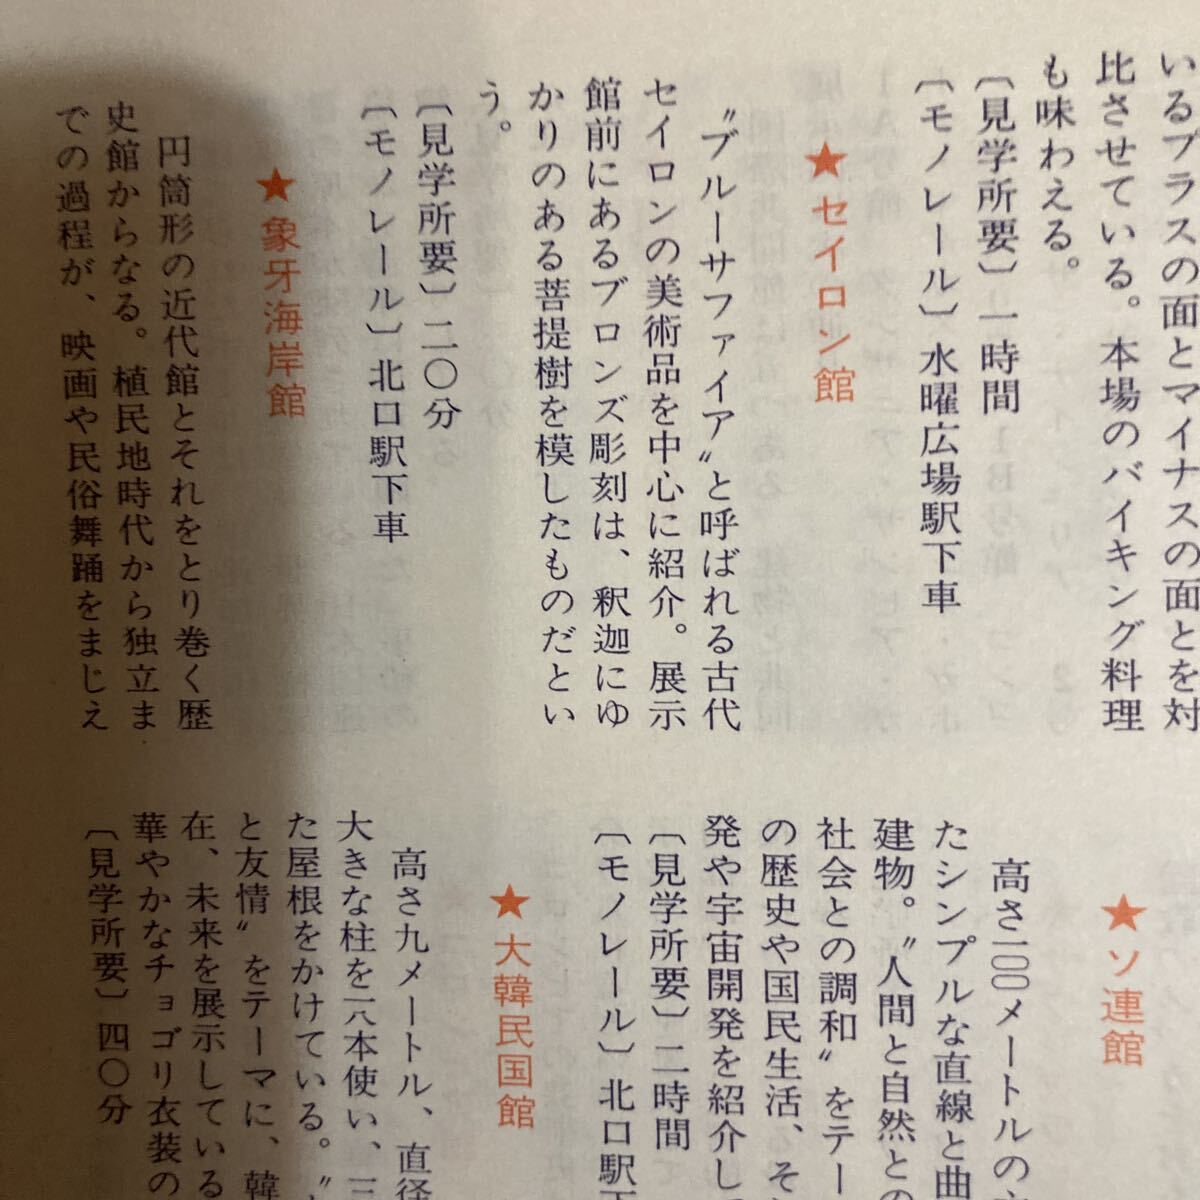 いるプラスの面とマイナスの面とを対
比させている。本場のバイキング料理
も味わえる。
〔見学所要〕一時間
〔モノレール〕水曜広場駅下車
★セイロン館
〝ブルーサファイア〟と呼ばれる古代
セイロンの美術品を中心に紹介。展示
館前にあるブロンズ彫刻は、釈迦にゆ
かりのある菩提樹を模したものだとい
う。
〔見学所要〕二〇分
〔モノレール〕北口駅下車
★象牙海岸館
円筒形の近代館とそれをとり巻く歴
史館からなる。植民地時代から独立ま
での過程が、映画や民俗舞踊をまじえ
★ソ連館
高さ一〇〇メートルの
たシンプルな直線と曲
建物。〝人間と自然との
社会との調和〟をテー
の歴史や国民生活、そ
発や宇宙開発を紹介し
〔見学所要〕二時間
〔モノレール〕北口駅下
★大韓民国館
高さ九メートル、直径
大きな柱を一八本使い、三
た屋根をかけている。〝
と友情〟をテーマに、韓
在、未来を展示している
華やかなチョゴリ衣装の
〔見学所要〕四〇分